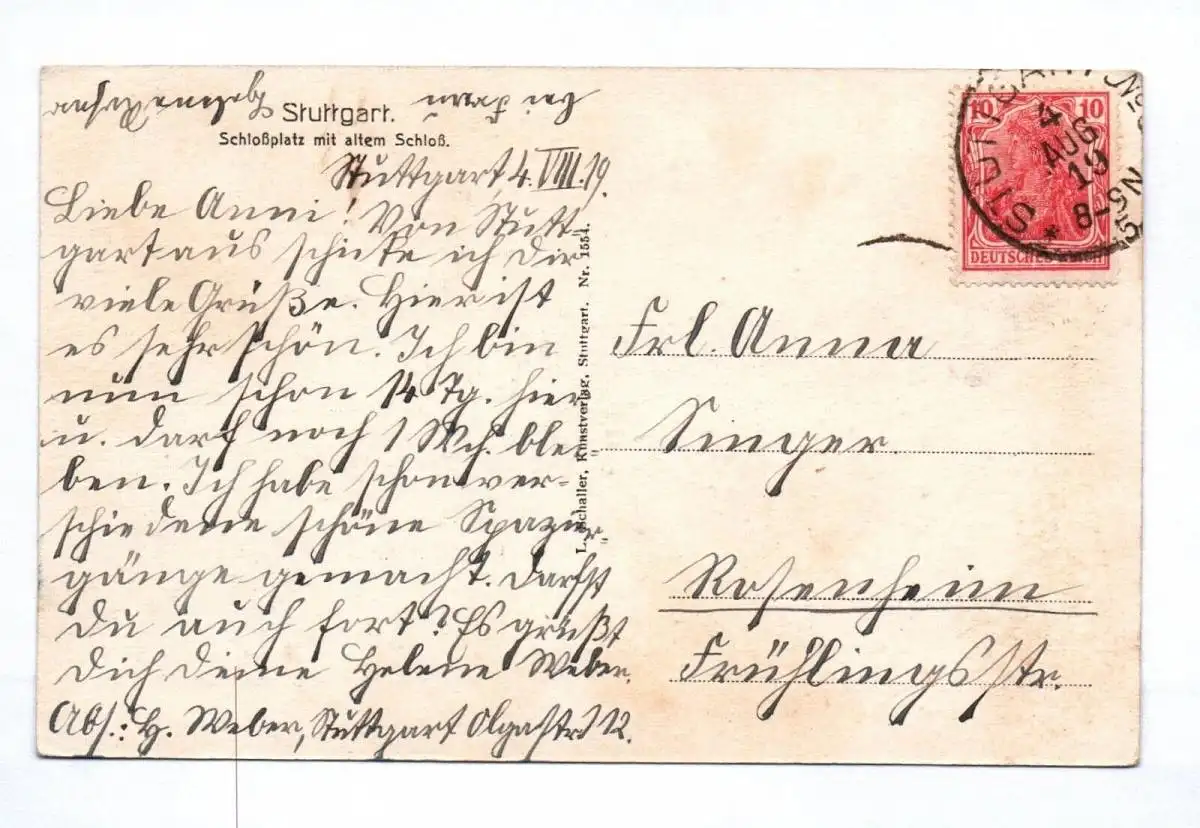 Stuttgart.
Schloßplatz mit altem Schloß.
Stuttgart, 4. VIII. 19.
Liebe Anni! Von Stutt=
gart aus schicke ich dir
viele Grüße. Hier ist
es sehr schön. Ich bin
nun schon 14 Tg. hier
u. darf noch 1 Wch. blei=
ben. Ich habe schon ver=
schiedene schöne Spazier=
gänge gemacht. Darfst
Du auch fort? Es grüßt
Dich deine Helene Weber.
Abs.: H. Weber, Stuttgart Olgastr 12.
L. Schaller, Kunstverlag, Stuttgart. Nr. 1554.
10 10
DEUTSCHES REICH
STUTTGART No
4
AUG
19
8-9N
Frl. Anna
Singer.
Rosenheim
Frühlingsstr.